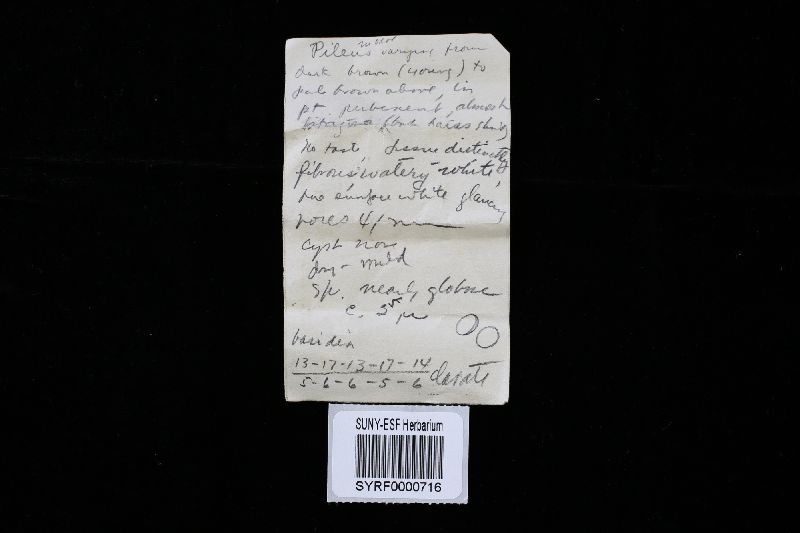 Pileus varying from
dark brown (young) to
pale brown above, in
pt pubescent, almost
hairs
No taste, tissue distinctly
fibrous, watery-white,
surface white glancing
pores 4/mm
cyst none
mild
sp. nearly globose
c. 5 µ
basidia
13-17-13-17-14
5-6-6-5-6 clavate
SUNY-ESF Herbarium
SYRF0000716